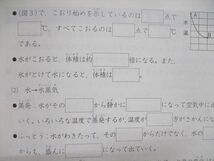 (図3)で,こおり始めを示しているのは 点で
℃,すべてこおるのは 点で
℃である。
水がこおると,体積は約 倍になる。また,
水がとけて水になると,体積は 。
(2) 水→水蒸気
蒸発…水がその から静かに になって空気中に
いく。いろいろな温度で蒸発するが,温度が
ふっとう…水がわきたって,その からだけでなく,水の
からも,盛んに になって出ていく。
水
温
℃
A
B